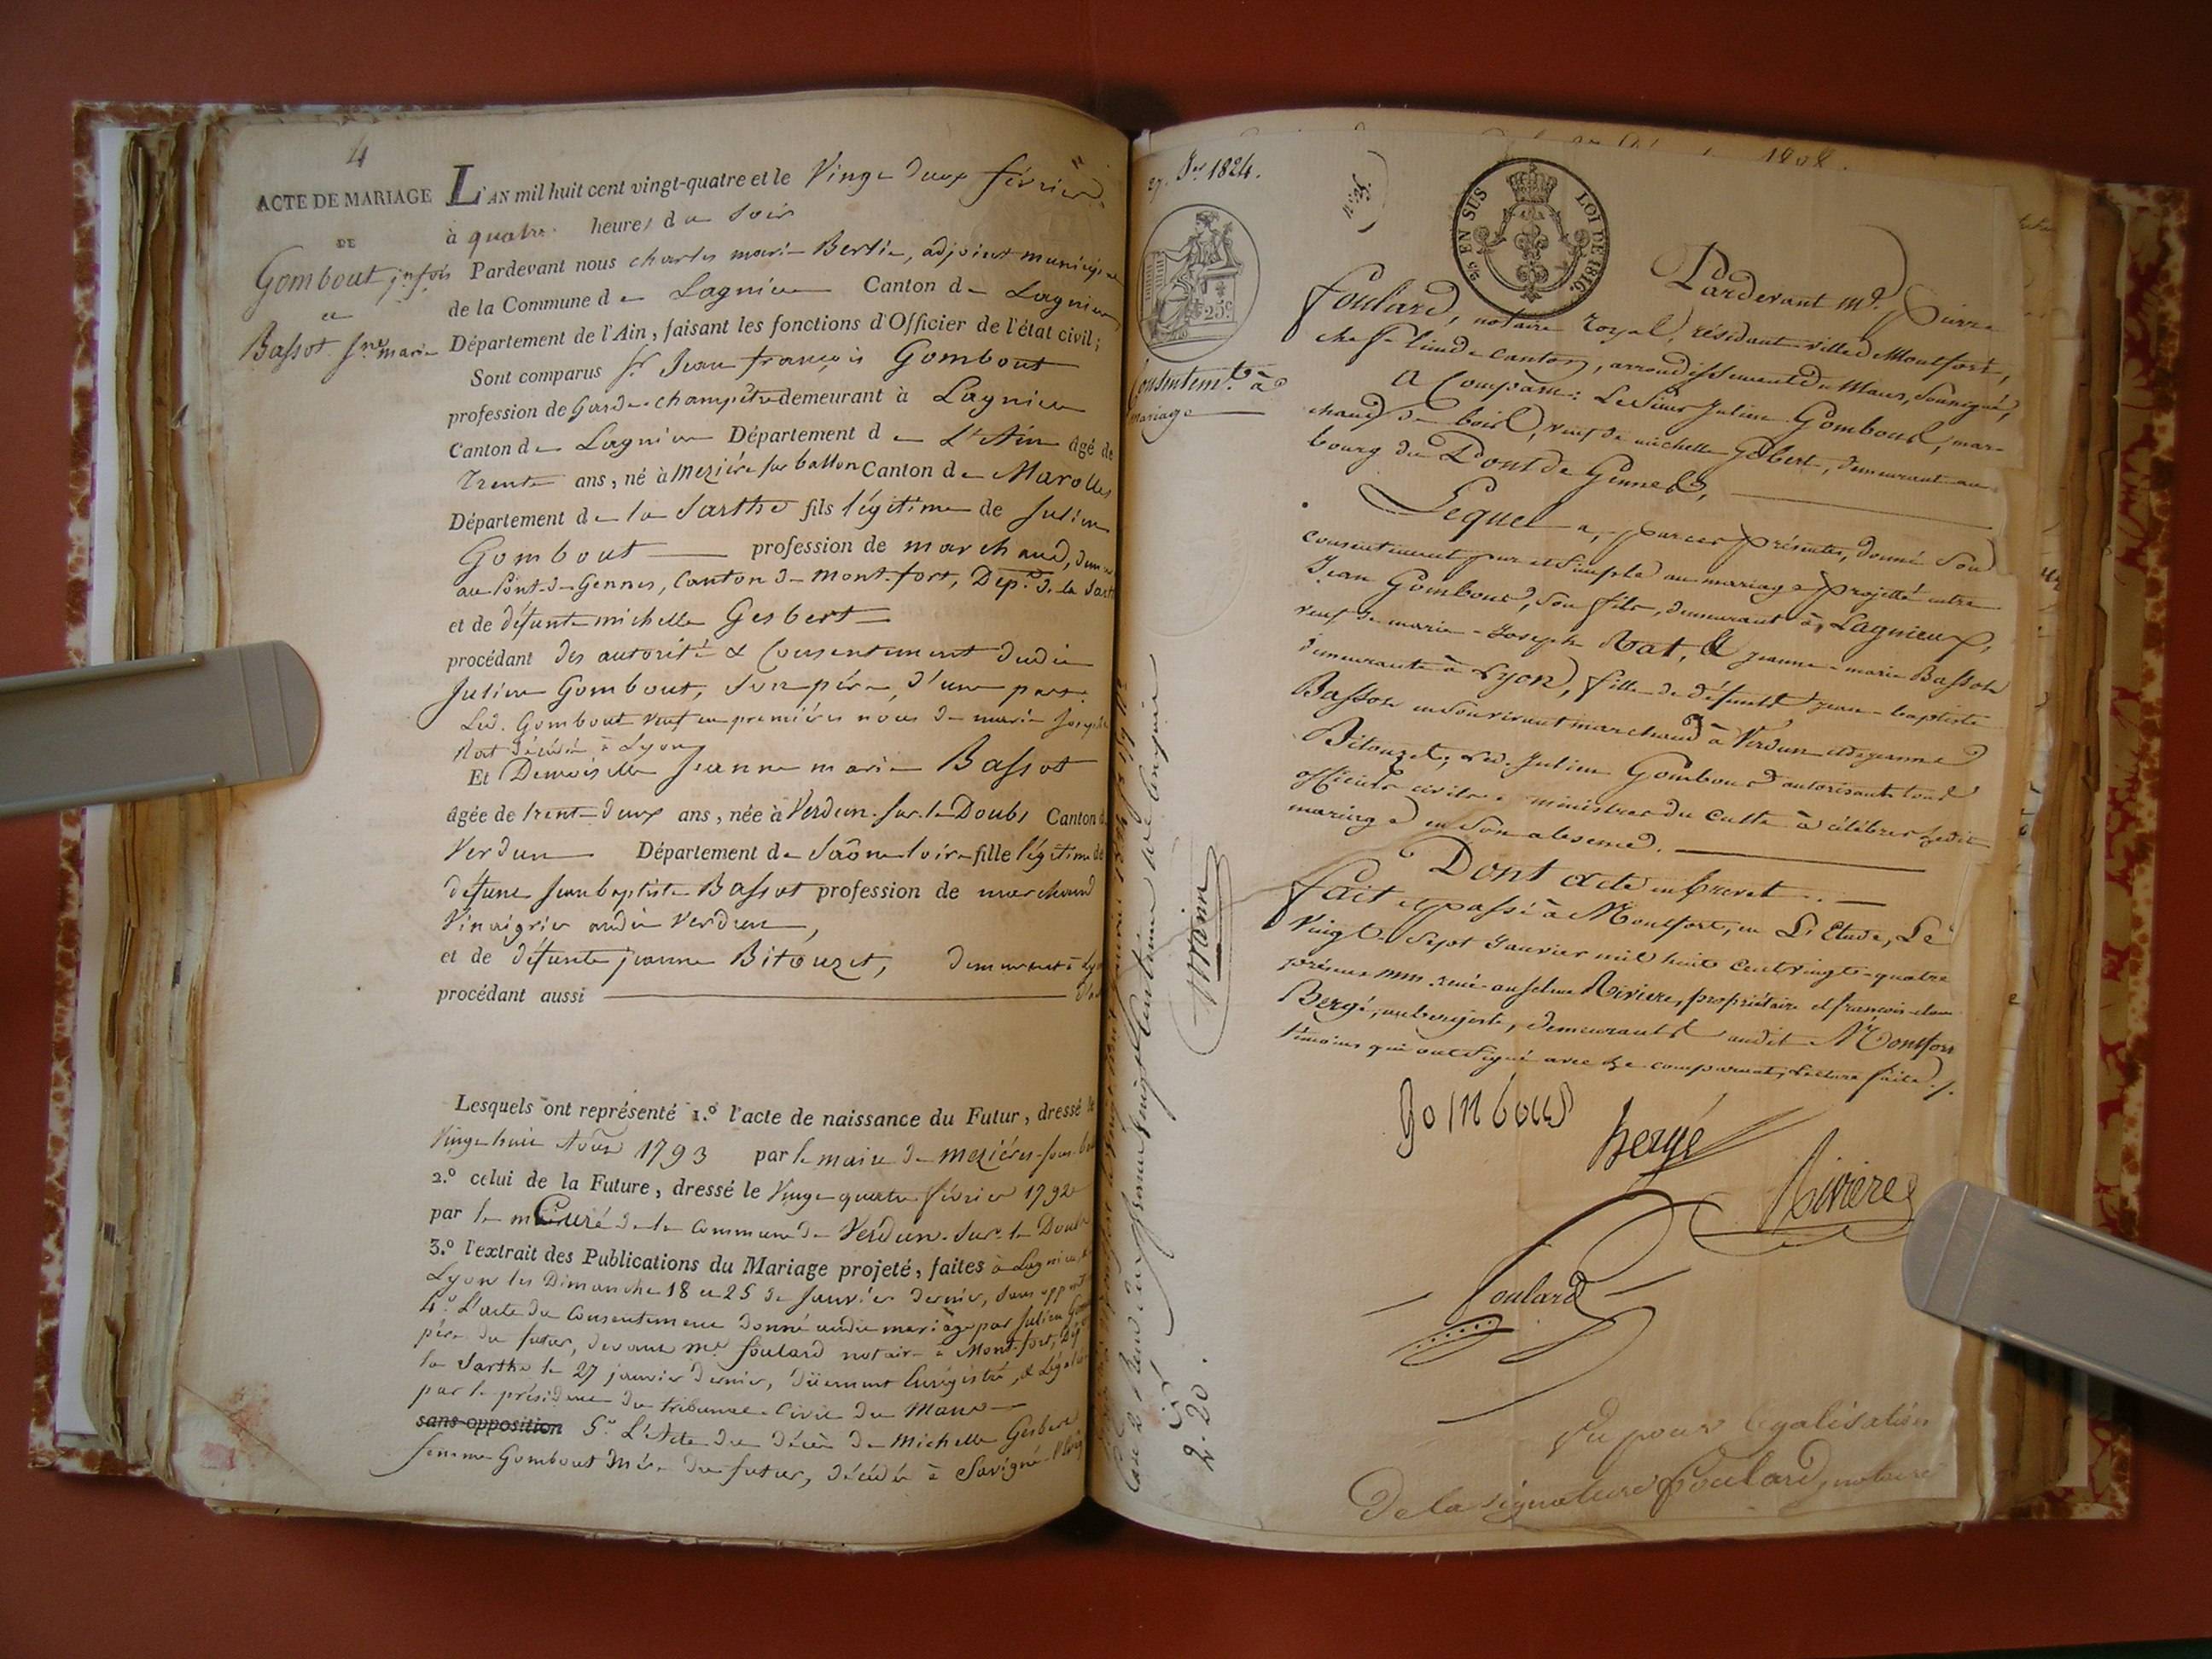 4
ACTE DE MARIAGE
DE
Gombout jn fois
et
Bassot jne marie
L'AN mil huit cent vingt-quatre et le Vingt deux février
à quatre heures du soir
Pardevant nous charles marie Bertin, adjoint municip
de la Commune de Lagnieu Canton de Lagnieu
Département de l'Ain, faisant les fonctions d'Officier de l'état civil;
Sont comparus Sr Jean françois Gombout
profession de Garde-champêtre demeurant à Lagnieu
Canton de Lagnieu Département de L'Ain âgé de
Trente ans, né à Mezière sur ballon Canton de Marolles
Département de la Sarthe fils légitime de Julien
Gombout profession de marchand, dem
au Pont-de-Gennes, Canton de Mont-fort, Dép.t de la Sart
et de défunte michelle Gesbert
procédant des autorité & Consentement dudit
Julien Gombout, son père, d'une part
Led. Gombout veuf en premières noces de marie Josephe
Nat décédée à Lyon
Et Demoiselle Jeanne marie Bassot
âgée de trente-deux ans, née à Verdun-sur-le-Doubs Canton d
Verdun Département de Saône-loire fille légitime de
défunt Jean baptiste Bassot profession de marchand
Vinaigrier audit Verdun,
et de défunte jeanne Bitouzet, demeurant à Ly
procédant aussi
Lesquels ont représenté 1.º l'acte de naissance du Futur, dressé le
Vingt huit Août 1793 par le maire de mezières-sous-b
2.º celui de la Future, dressé le Vingt quatre février 1792
par le Curé de la commune de Verdun-sur-le Doubs
3.º l'extrait des Publications du Mariage projeté, faites à Lagnieu &
Lyon les Dimanche 18 et 25 de Janvier dernier, sans oppo
4.º L'acte du Consentement donné audit mariage par Julien Gom
père du futur, devant me foulard notaire à Mont-fort, Dép
la Sarthe le 27 janvier dernier, dûement Enregistré, & Légalis
par le président du tribunal Civil du Mans
sans opposition 5.º L'Acte de décès de Michelle Gesbert
femme Gombout mère du futur, décédée à Savigné-l'Evêq
27. Jer 1824.
EN SUS
LOI DE 1816.
25c
Consentemt. à
mariage
Pardevant Me. Pierre
Foulard, notaire royal, résidant ville de Montfort,
chef-lieu de canton, arrondissement du Mans, soussigné,
A Comparu: Le Sieur Julien Gombout, mar-
chand de bois, veuf de michelle Gebert, demeurant au
bourg du Pont de Gennes,
Lequel a, par ces présentes, donné son
consentement pur et simple au mariage projetté entre
Jean Gombout, son fils, demeurant à Lagnieux,
veuf de marie-Joseph Nat, & jeanne-marie Bassot
demeurante à Lyon, fille de défunts jean-baptiste
Bassot en son vivant marchand à Verdun et de jeanne
Bitouzet; led. Julien Gombout autorisant tous
officiers civils & ministres du culte à célébrer ledit
mariage en son absence.
Dont acte en brevet.
Fait et passé à Montfort, en L'Etude, Le
vingt-sept Janvier mil huit cent vingt-quatre
présens mm. rené-anselme Riviere, propriétaire et françois-
Bergé, aubergiste, demeurants audit Montfort
témoins qui ont signé avec le comparant, Lecture faite.
Gombout
Bergé
Riviere
Foulard
2. 20.
Vu pour légalisation
De la signature Foulard, notaire